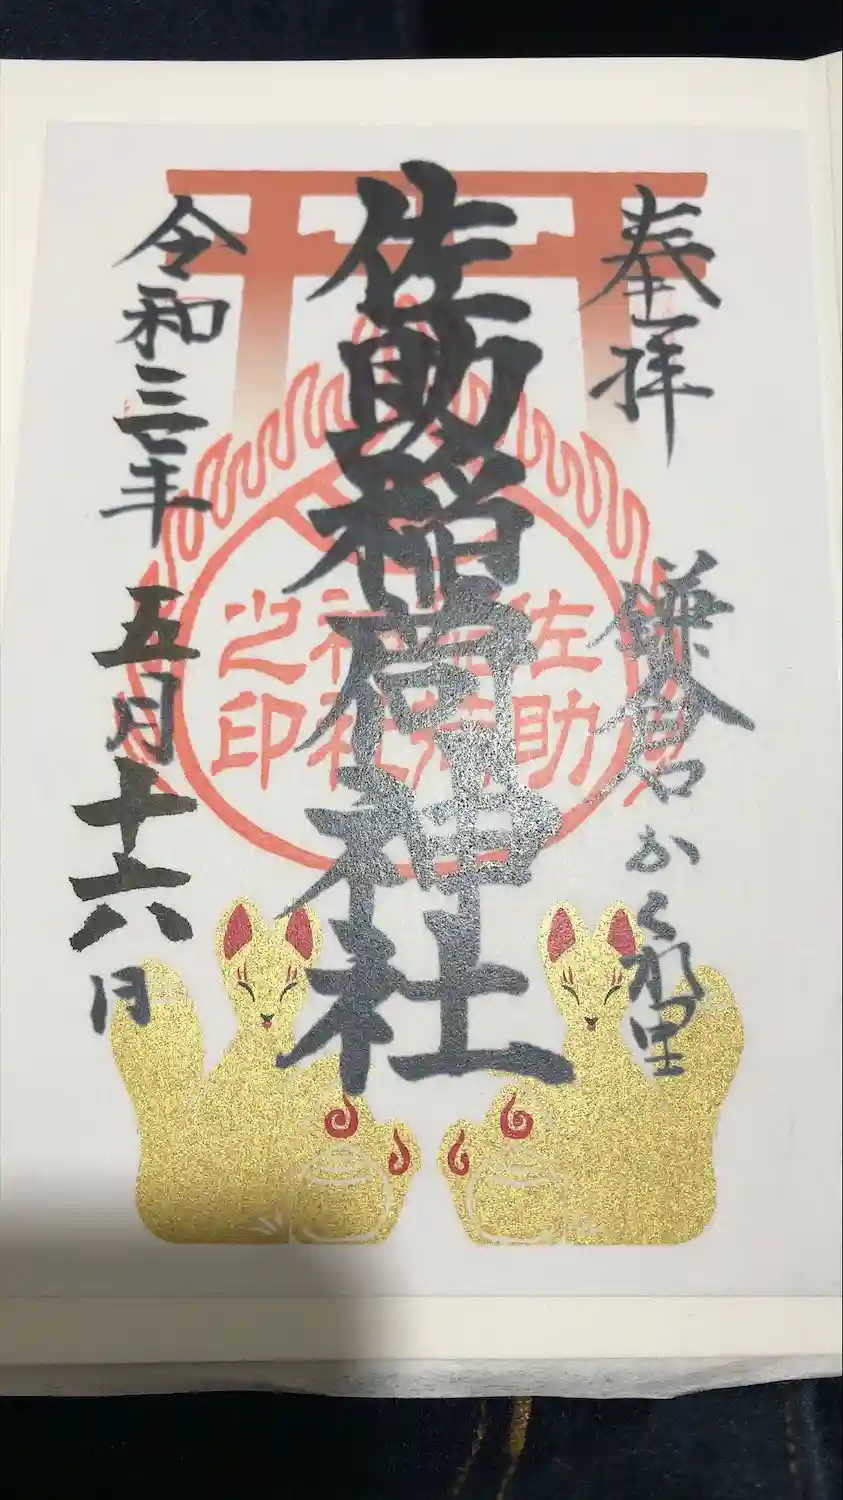 奉拝
鎌倉かくれ里
佐助稲荷神社
令和三年
五月十六日
佐助
稲荷
神社
之印